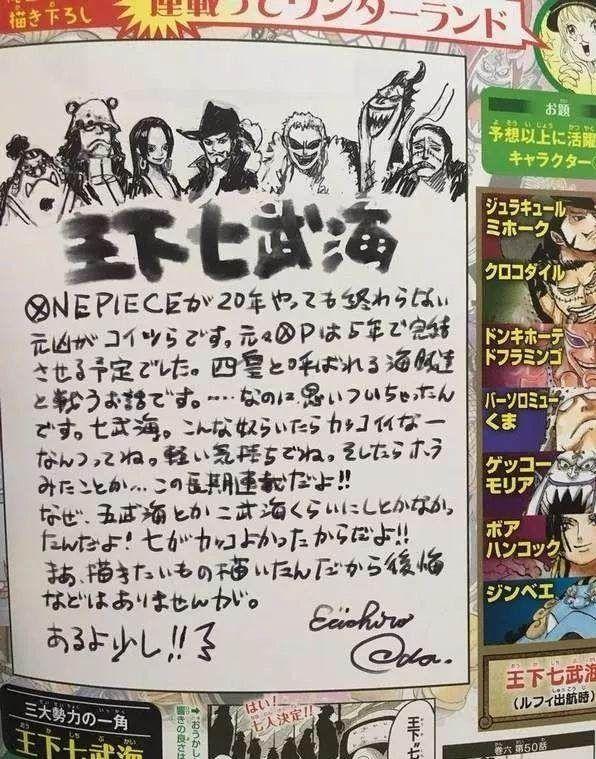 描き下ろし
連載ってワンダーランド
王下七武海
ⓍNE PIECEが20年やっても終わらない
元凶がコイツらです。元々ⓍPは5年で完結
させる予定でした。四皇と呼ばれる海賊達
と戦うお話です。……なのに思いついちゃったん
です。七武海。こんな奴らいたらカッコイイなー
なんつってね。軽い気持ちでね。そしたらホラ
みたことか…この長期連載だよ!!
なぜ、五武海とか二武海くらいにしとかなかっ
たんだよ!七がカッコよかったからだよ!!
まあ、描きたいもの描いたんだから後悔
などはありませんが。
あるよ少し!!
Eiichiro
Oda.
お題
予想以上に活躍
キャラクター
ジュラキュール
ミホーク
クロコダイル
ドンキホーテ
ドフラミンゴ
バーソロミュー
くま
ゲッコー
モリア
ボア
ハンコック
ジンベエ
王下七武海
(ルフィ出航時)
三大勢力の一角
王下七武海
おうかしちぶかい
はい!
七人決定!!
王下"七
巻六 第50話